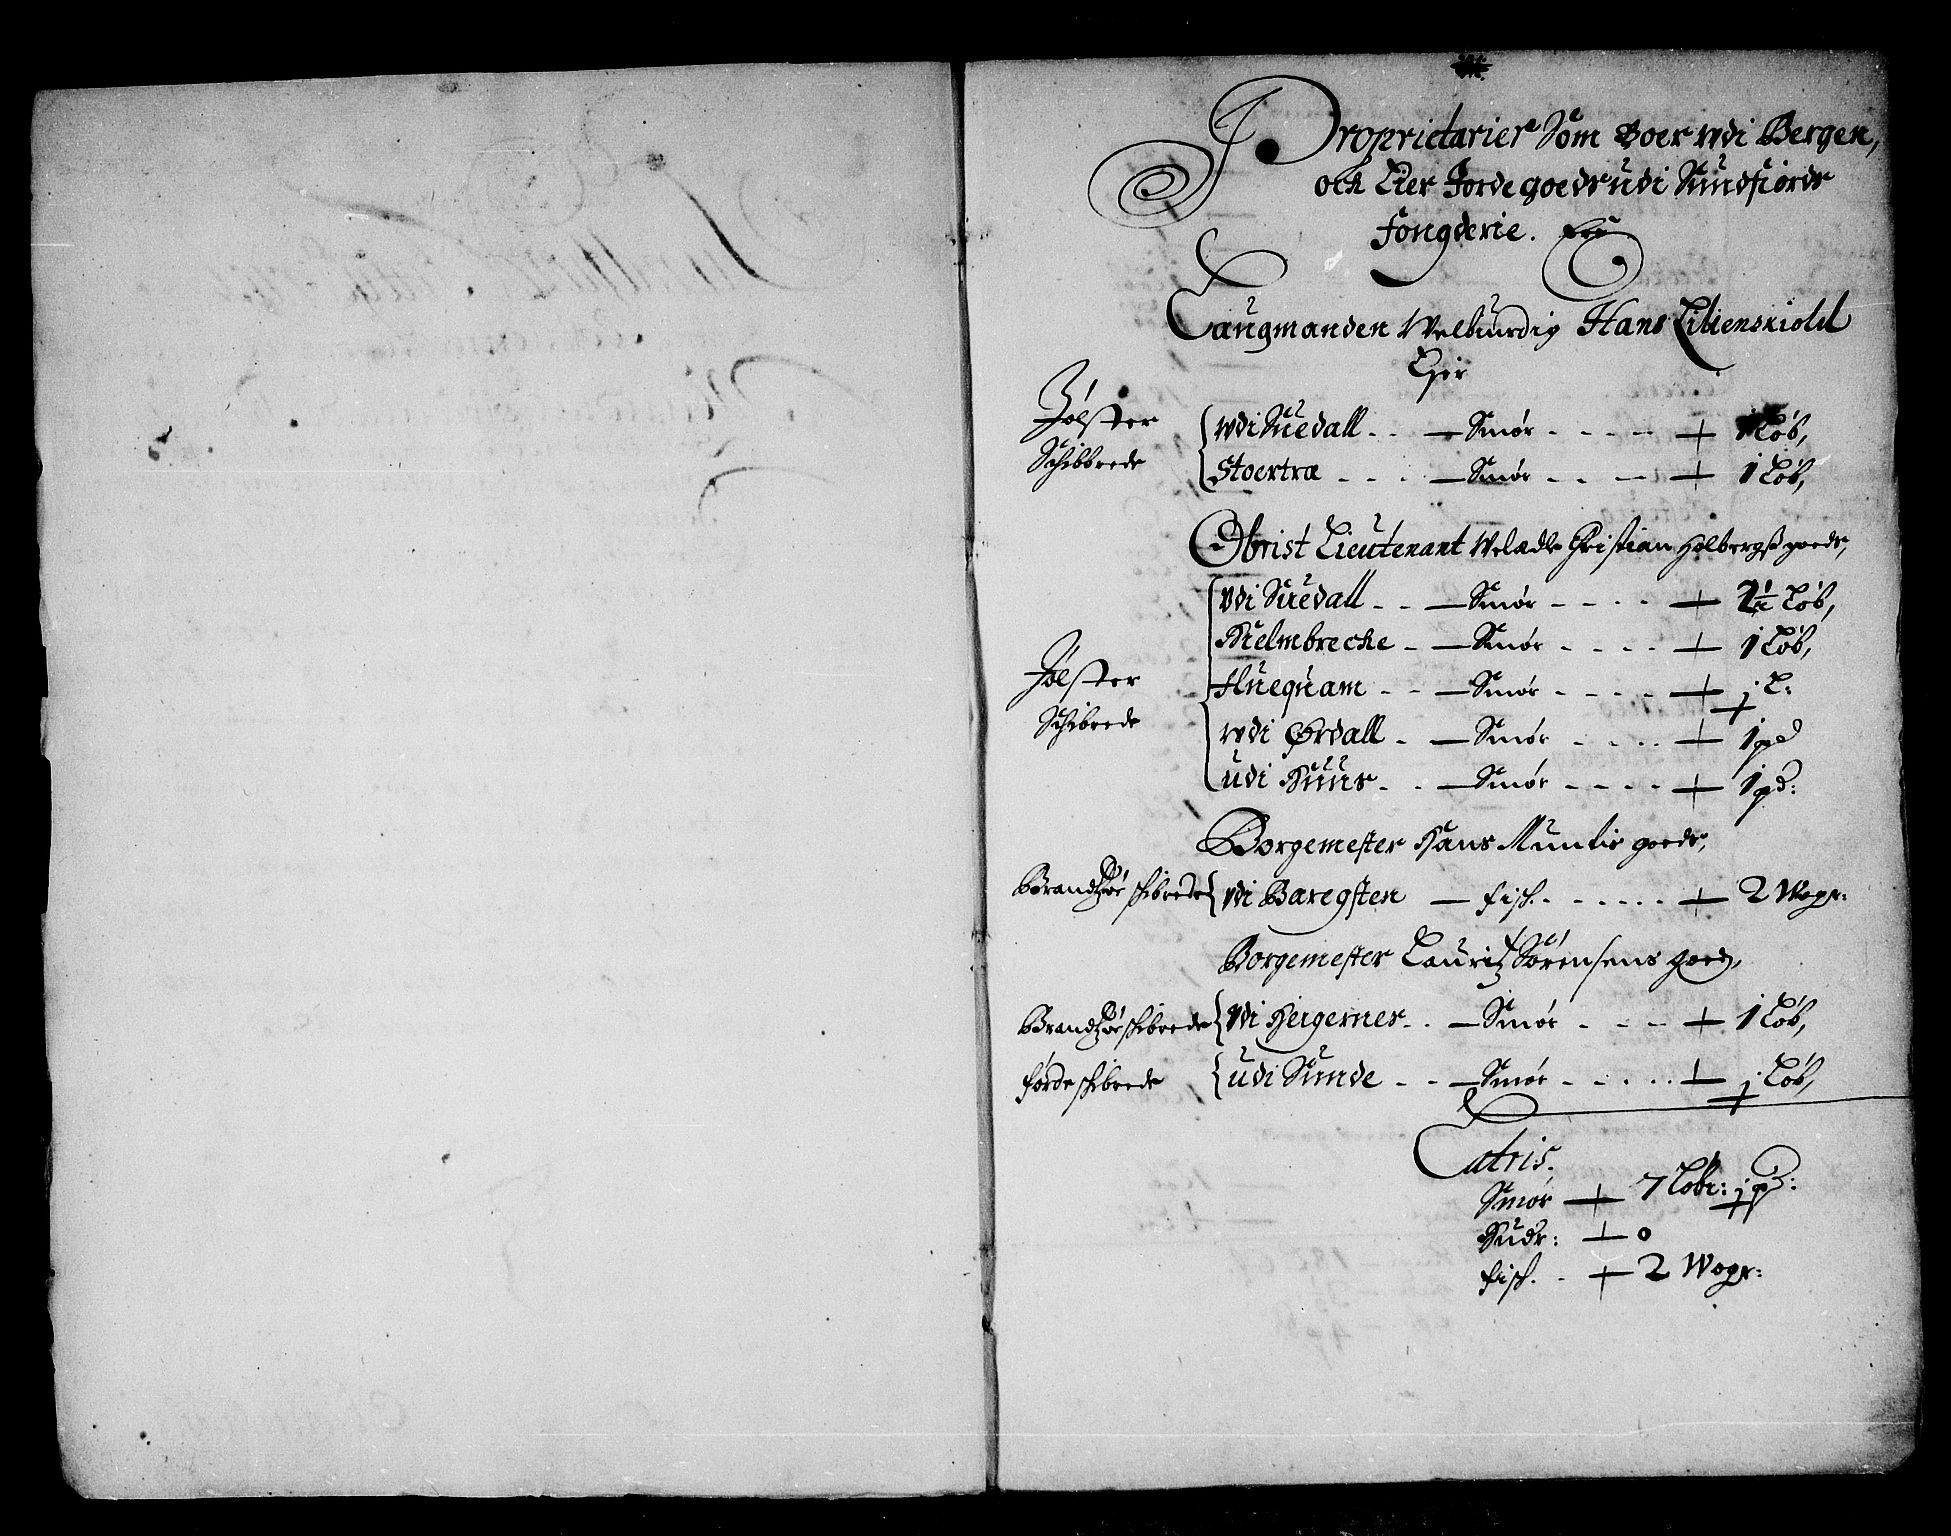 Proprietarier Som Boer udi Bergen,
och Eier Jordegoeds udi Sundfiords
Fougderie.
Laugmanden Welbiurdig Hans Lilienskiold
Ejer
Jølster Schibbrede
udi Suedall - - Smør - - - - 1 Løb,
Stoertræ - - - Smør - - - 1 Løb,
Obrist Lieutenant Welædle Christian Holbergs goeds,
Jølster Schibrede
Udi Suedall - - Smør - - - - 2½ Løb,
Kielmbrecke - Smør - - - - 1 Løb,
Huequam - - Smør - - - - j L:
udi Ørdall - Smør - - - - 1 pd
udi Kuus - - Smør - - - - 1 pd:
Borgemester Hans Muntis goeds,
Brandsøe schibrede udi Baregsten - fisch - - - - - 2 Woger:
Borgemester Lauritz Sørensens goeds,
Brandsøe schibrede udi Heigernes - - Smør - - - - 1 Løb,
førde schibrede udi Sunde - - Smør - - - - j Løb,
Latris.
Smør 7 Løber: j pd:
Huder: 0
fisch - 2 Woger: